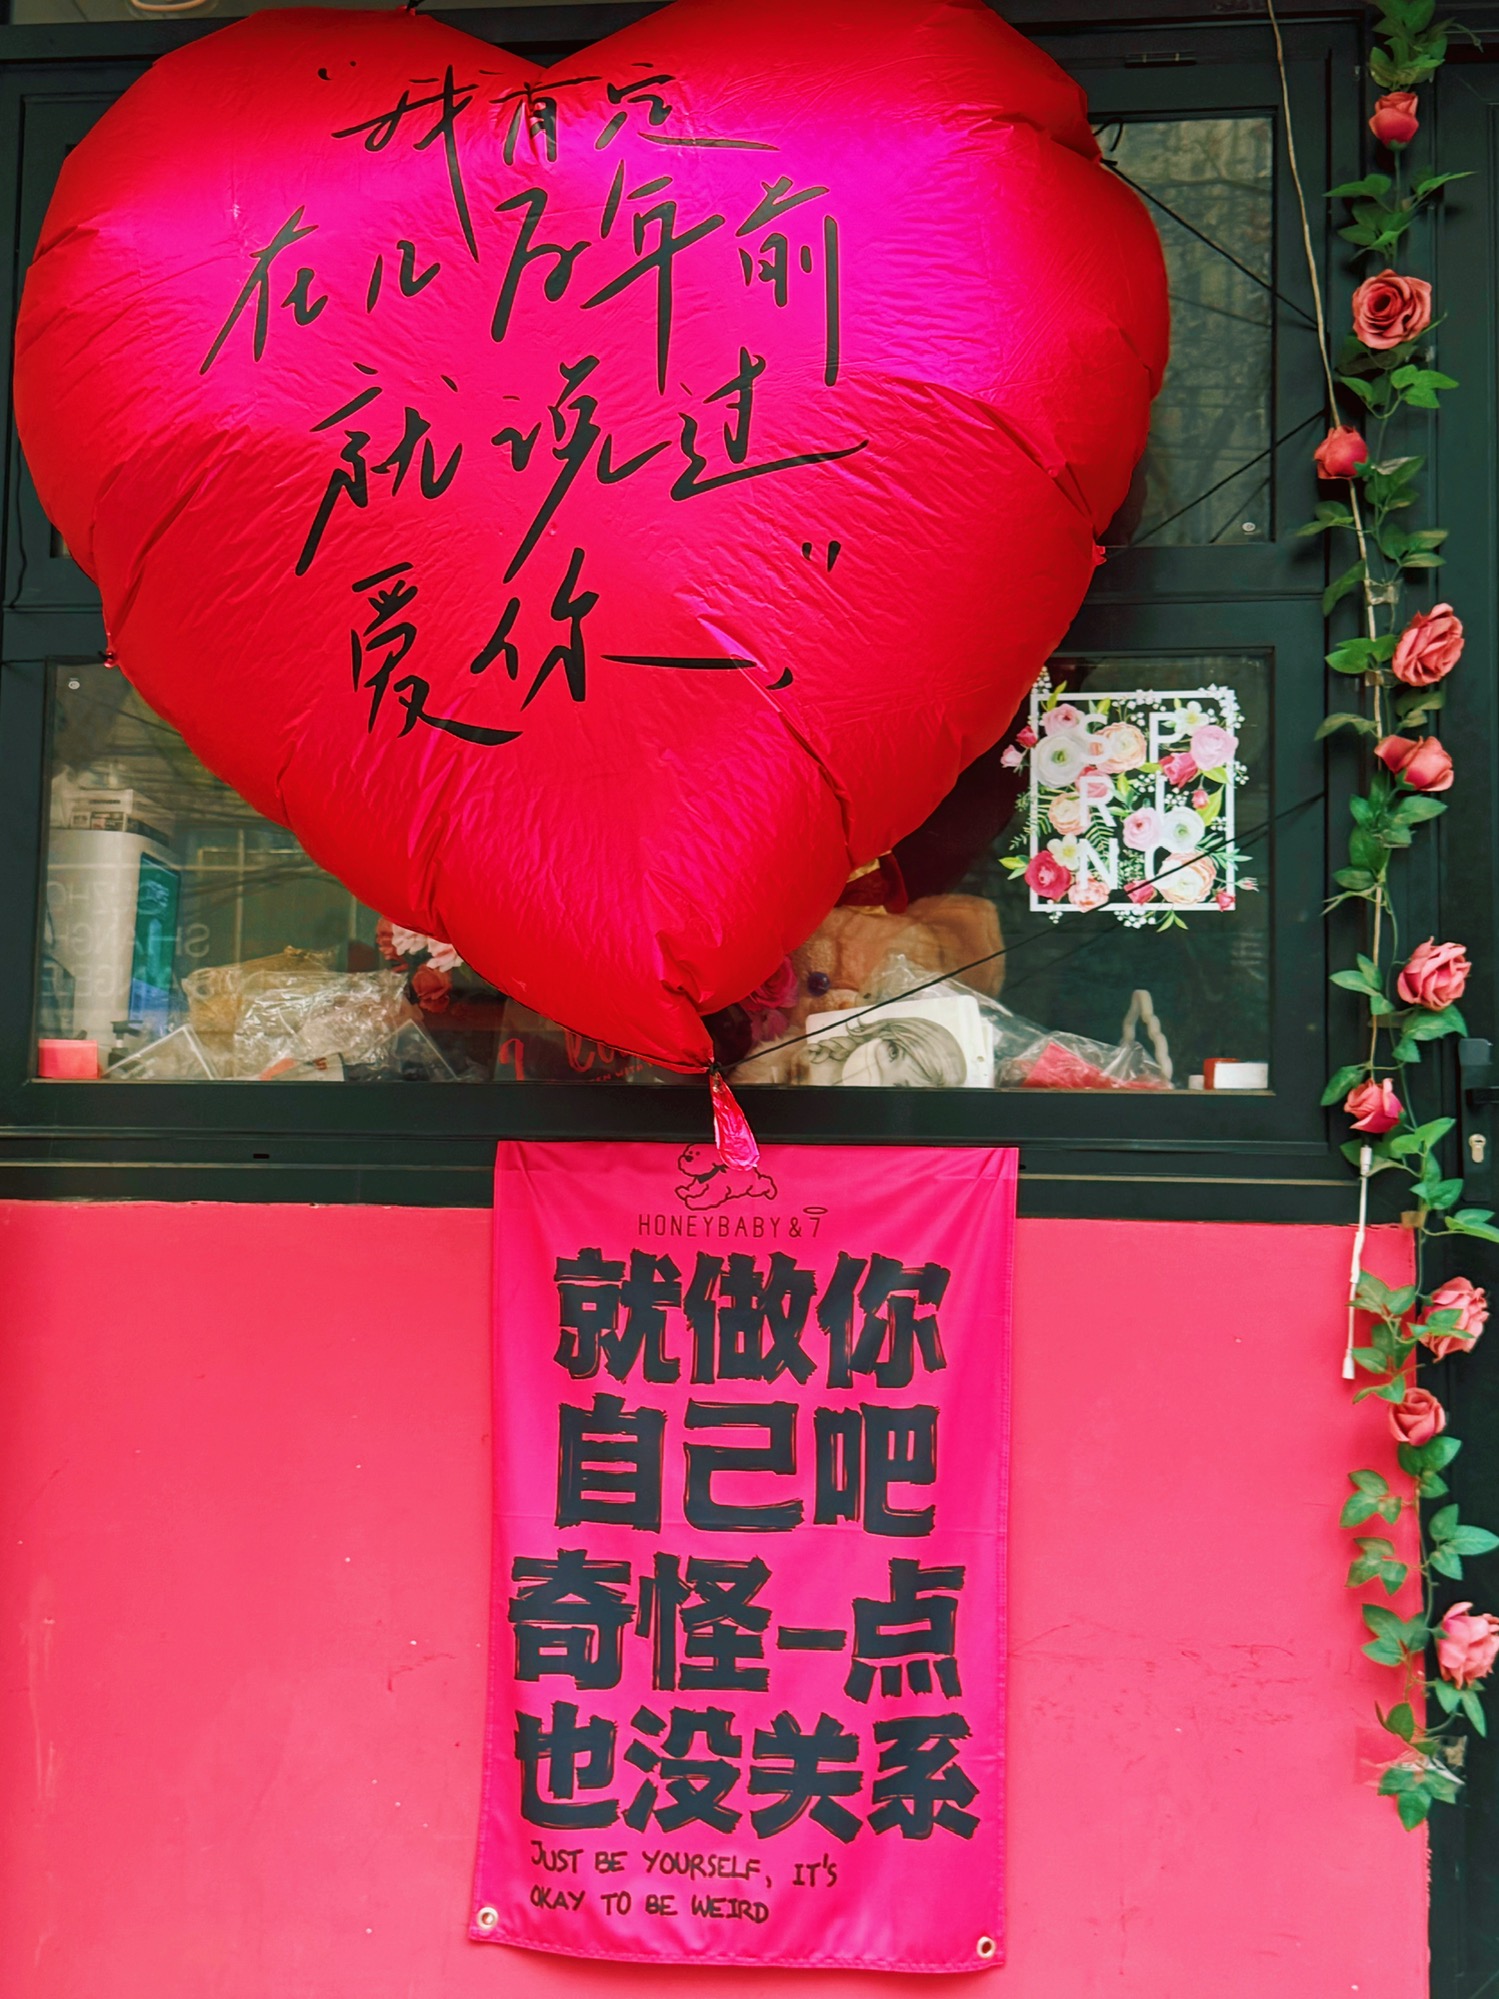 “我肯定
在几百年前
就说过
爱你—，”
SP
RI
NG
HONEYBABY&7
就做你
自己吧
奇怪一点
也没关系
JUST BE YOURSELF, IT'S
OKAY TO BE WEIRD